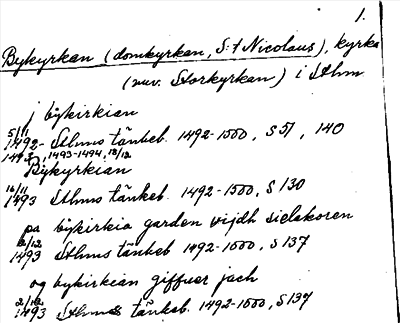 1.
Bykyrkan (domkyrkan, S:t Nicolaus), kyrka
(nuv. Storkyrkan) i Sthm
j bykirkian
5/11 1492- Sthms tänkeb. 1492-1500, S 51, 140
1493, 1493-1494, 12/12
Bykyrkian
16/11 1493 Sthms tänkeb. 1492-1500, S 130
pa bykirkia garden vijdh sielakoren
2/12 1493 Sthms tänkeb 1492-1500, S 137
og bykirkian giffuer jach
2/12 1493 Sthms tänkeb. 1492-1500, S 137